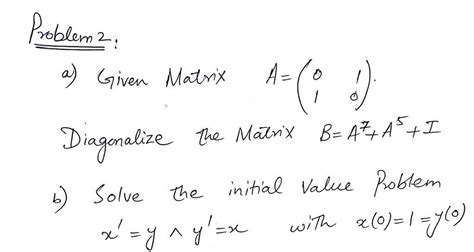 Problem 2:
a) Given Matrix A = ( 0 1
1 0 ).
Diagonalize the Matrix B = A⁷ + A⁵ + I
b) Solve the initial value Problem
x' = y ∧ y' = x with x(0) = 1 = y(0)